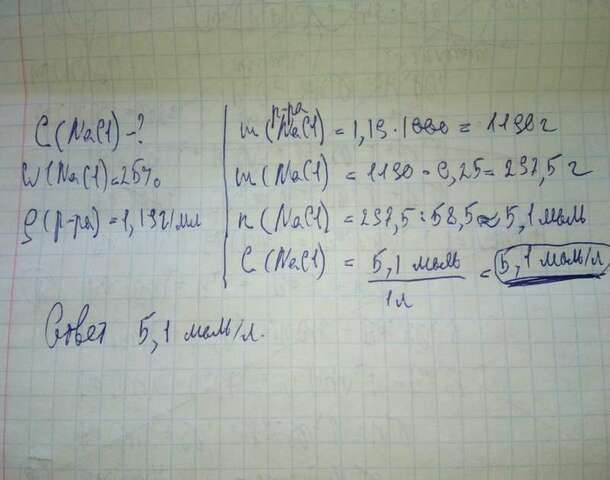 C(NaCl)-?
W(NaCl)=25%
ρ(р-ра)=1,19г/мл
р-ра
m(NaCl)=1,19·1000=1190г
m(NaCl)=1190·0,25=297,5г
n(NaCl)=297,5:58,5≈5,1моль
C(NaCl)=5,1 моль/1л=5,1 моль/л
Ответ 5,1 моль/л.